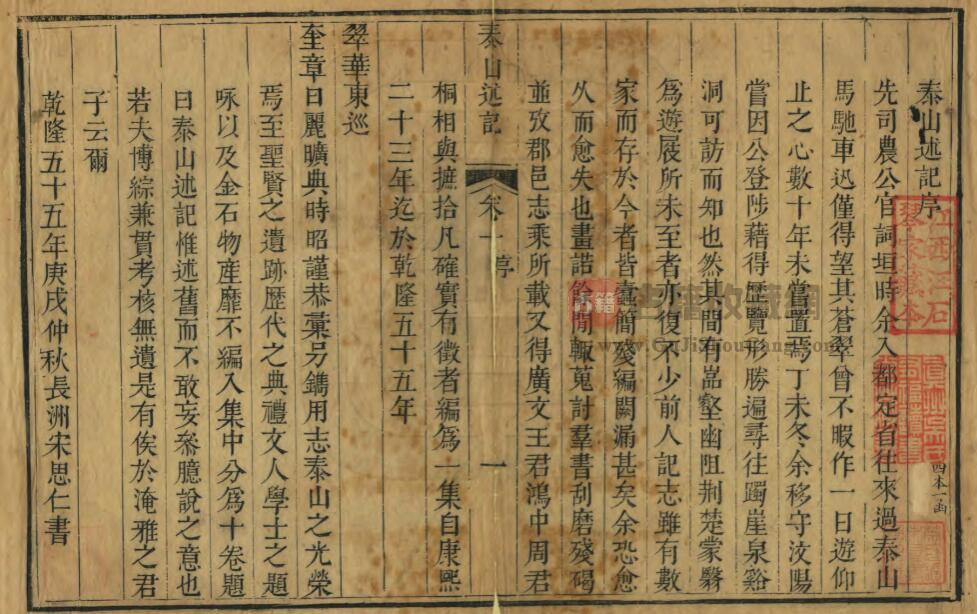 泰山述記序
先司農公官詞垣時余入都定省往來過泰山
馬馳車迅僅得望其蒼翠曾不暇作一日遊仰
止之心數十年未嘗置焉丁未冬余移守汶陽
嘗因公登陟藉得歷覽形勝遍尋往躅崖泉谿
洞可訪而知也然其間有嵓壑幽阻荆楚蒙翳
爲遊屐所未至者亦復不少前人記志雖有數
家而存於今者皆蠧簡殘編闕漏甚矣余恐愈
久而愈失也畫諾餘閒輙蒐討羣書刮磨殘碣
並攷郡邑志乘所載又得廣文王君鴻中周君
泰山述記
卷一
序
一
桐相與摭拾凡確實有徵者編爲一集自康熙
二十三年迄於乾隆五十五年
翠華東巡
奎章日麗曠典時昭謹恭彚另鐫用志泰山之光榮
焉至聖賢之遺跡歷代之典禮文人學士之題
咏以及金石物産靡不編入集中分爲十卷題
曰泰山述記惟述舊而不敢妄參臆說之意也
若夫博綜兼貫考核無遺是有俟於淹雅之君
子云爾
乾隆五十五年庚戌仲秋長洲宋思仁書
四本一函